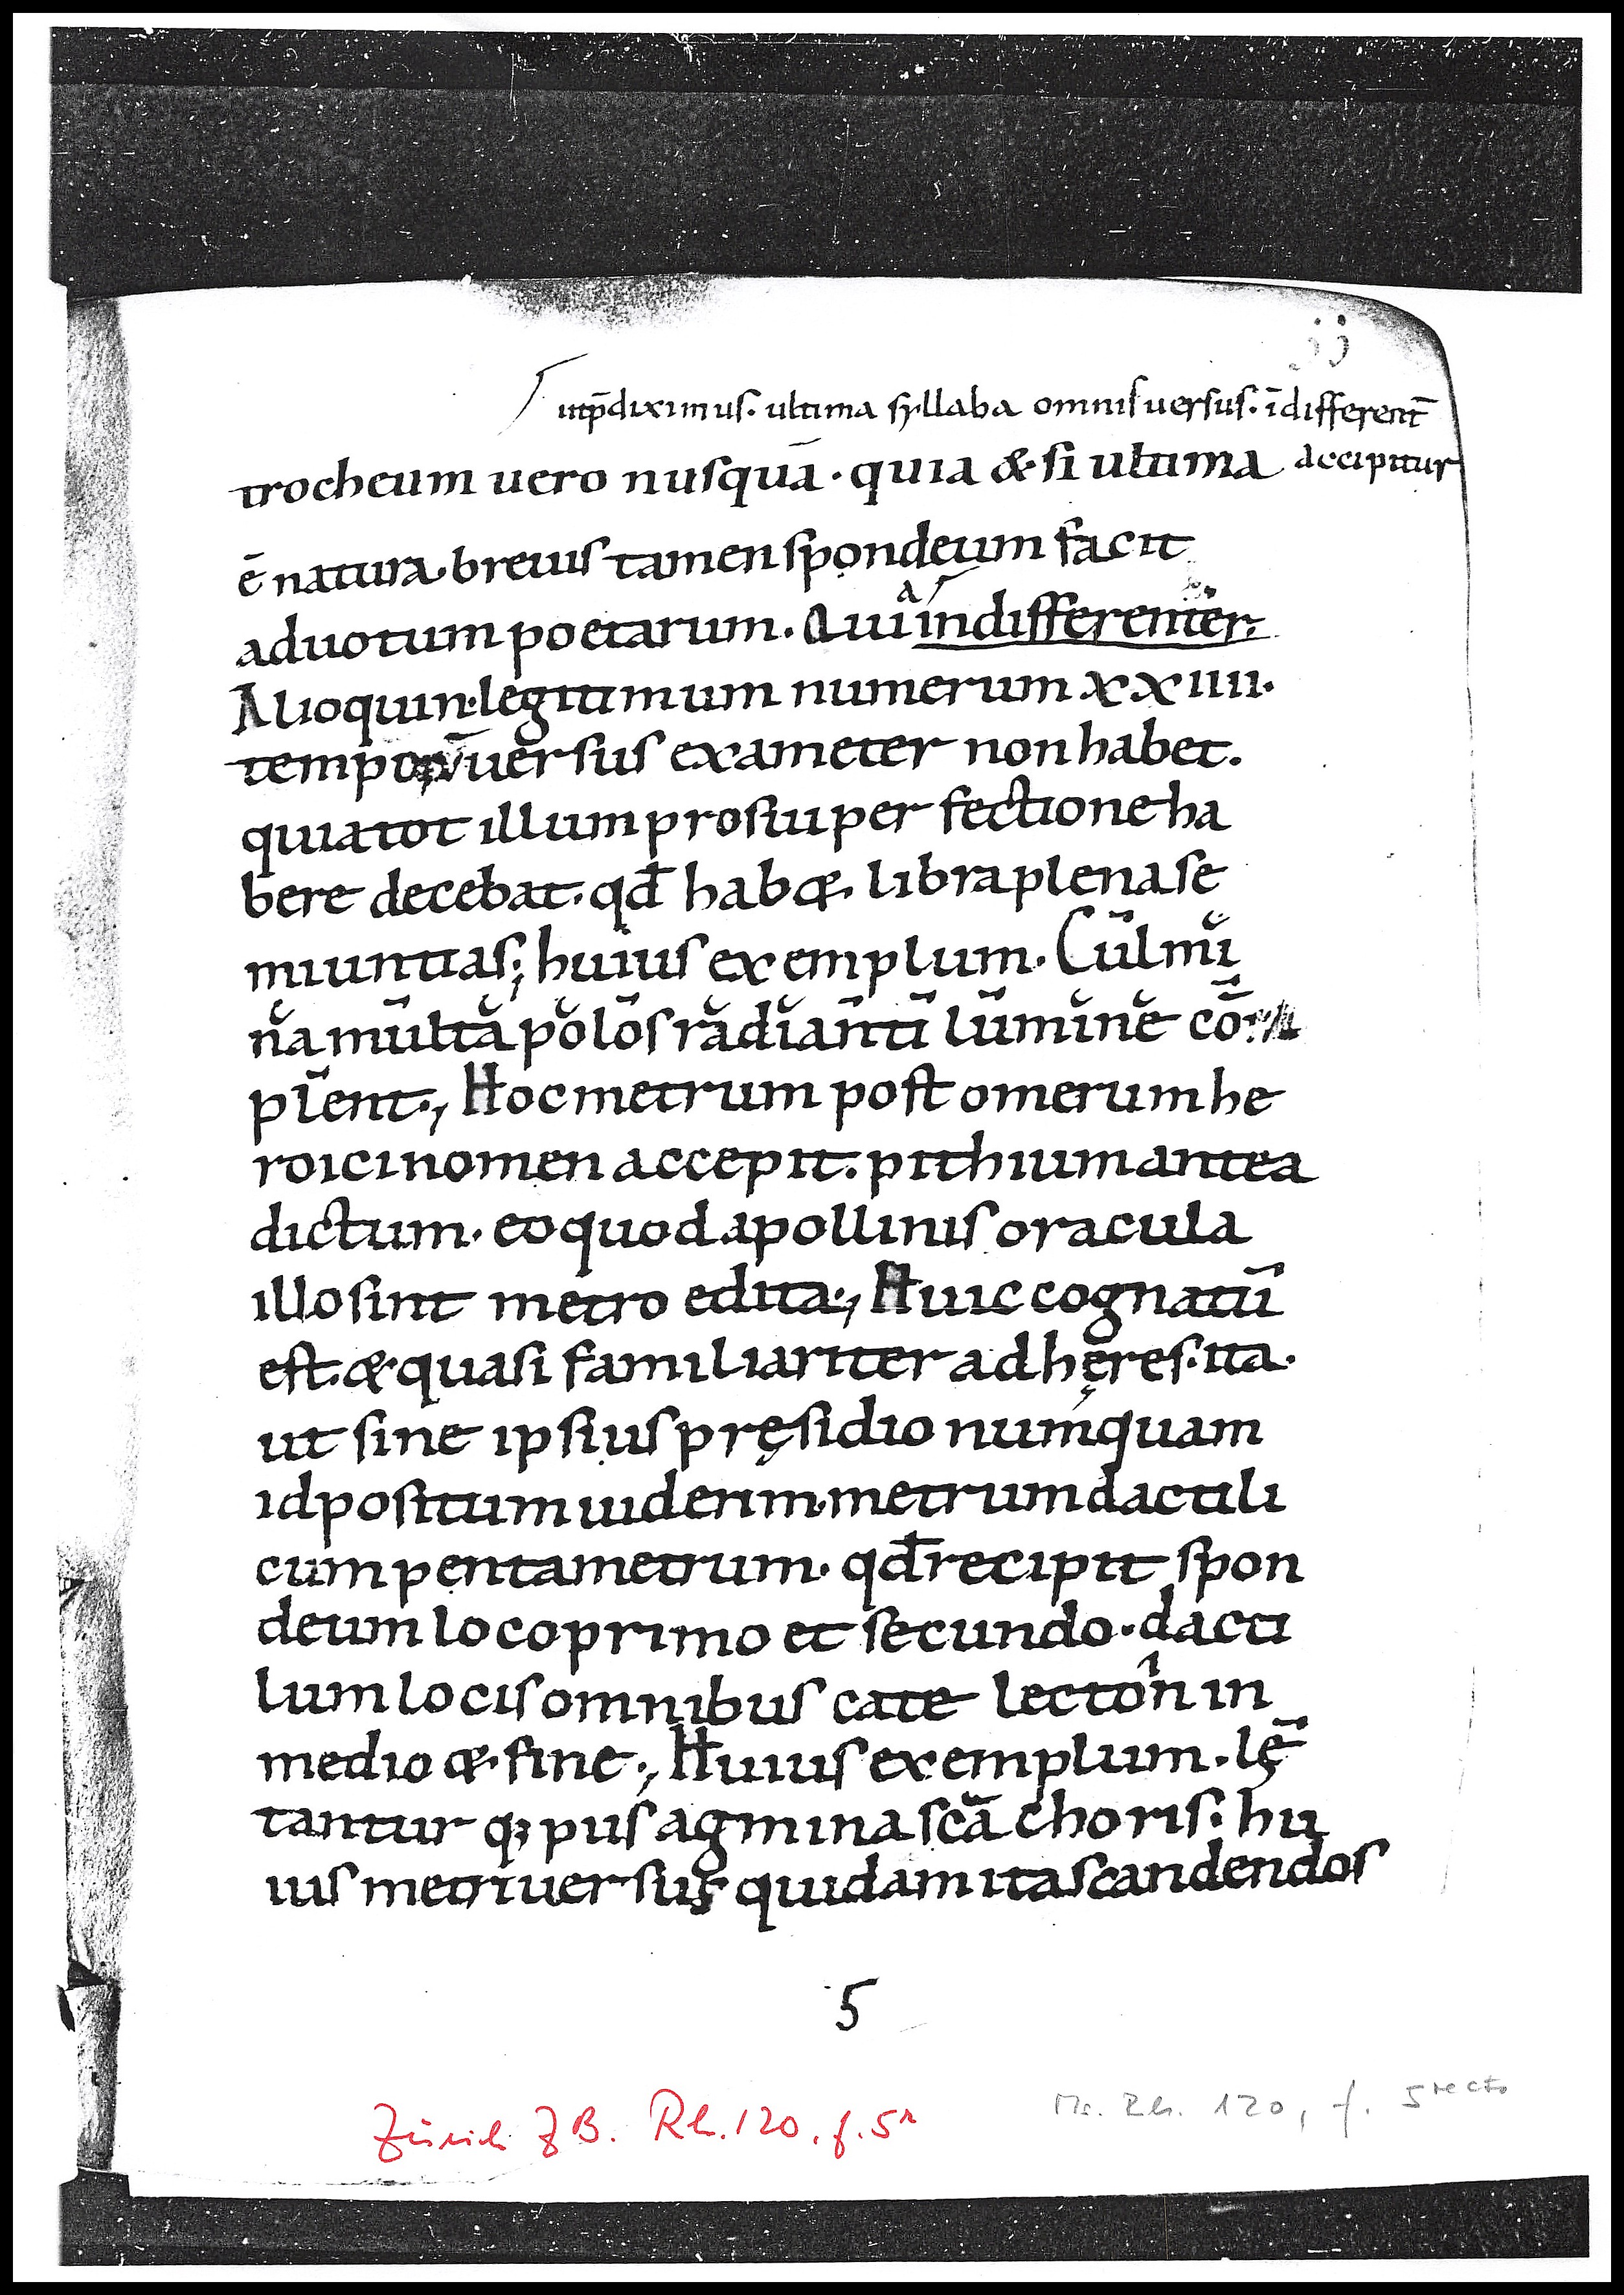 ut p̄diximus. ultima syllaba omnis uersus. īdifferent̄
accipitur
trocheum uero nusquā. quia & si ultima
ē natura breuis tamen spondeum facit
ad uotum poetarum. Qui indifferenter.
Alioquin legitimum numerum xxiiii.
uersus exameter non habet.
quia tot illum pro sui perfectione ha
bere decebat. qd̄ hab&. libra plena se
miuntias; huius exemplum. Cūlmĭ
nă mūltă pŏlōs rădĭāntī lūmĭnĕ
plēnt., Hoc metrum post omerum he
roici nomen accepit. pithium antea
dictum. eo quod apollinis oracula
illo sint metro edita., Huic cognatū
est. & quasi familiariter adhęres. ita.
ut sine ipsius pręsidio numquam
id positum uiderim. metrum dactili
cum pentametrum. qd̄ recipit spon
deum loco primo et secundo. dacti
lum locis omnibus cate lecton in
medio & fine., Huius exemplum. lę̄
tantur q; pus agmina scā choris. hu
ius metri uersus quidam ita scandendos
5
Zürich ZB. Rh. 120, f. 5r
Ms. Rh. 120, f. 5 recto